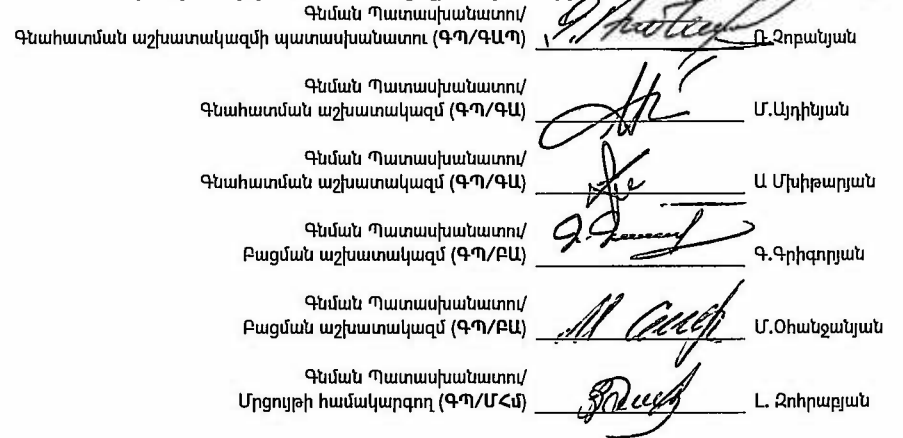 Գնման Պատասխանատու/
Գնահատման աշխատակազմի պատասխանատու (ԳՊ/ԳԱՊ) Ռ.Չոբանյան
Գնման Պատասխանատու/
Գնահատման աշխատակազմ (ԳՊ/ԳԱ) Մ.Այդինյան
Գնման Պատասխանատու/
Գնահատման աշխատակազմ (ԳՊ/ԳԱ) Ա Մխիթարյան
Գնման Պատասխանատու/
Բացման աշխատակազմ (ԳՊ/ԲԱ) Գ.Գրիգորյան
Գնման Պատասխանատու/
Բացման աշխատակազմ (ԳՊ/ԲԱ) Մ.Օհանջանյան
Գնման Պատասխանատու/
Մրցույթի համակարգող (ԳՊ/ՄՀմ) Լ. Զոհրաբյան